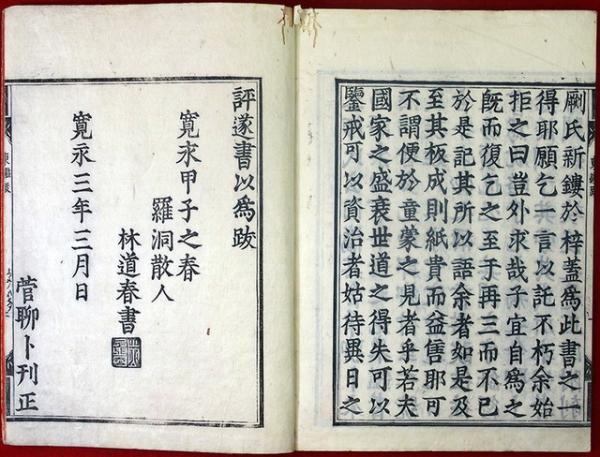 劂氏新鏤於梓蓋為此書之一
得耶願乞一言以託不朽余始
拒之曰豈外求哉子宜自為之
既而復乞之至于再三而不已
於是記其所以語余者如是及
至其板成則紙貴而益售耶可
不謂便於童蒙之見者乎若夫
國家之盛衰世道之得失可以
鑒戒可以資治者姑待異日之
評遂書以為跋
寬永甲子之春
羅洞散人
林道春書
寬永三年三月日
菅聊卜刊正